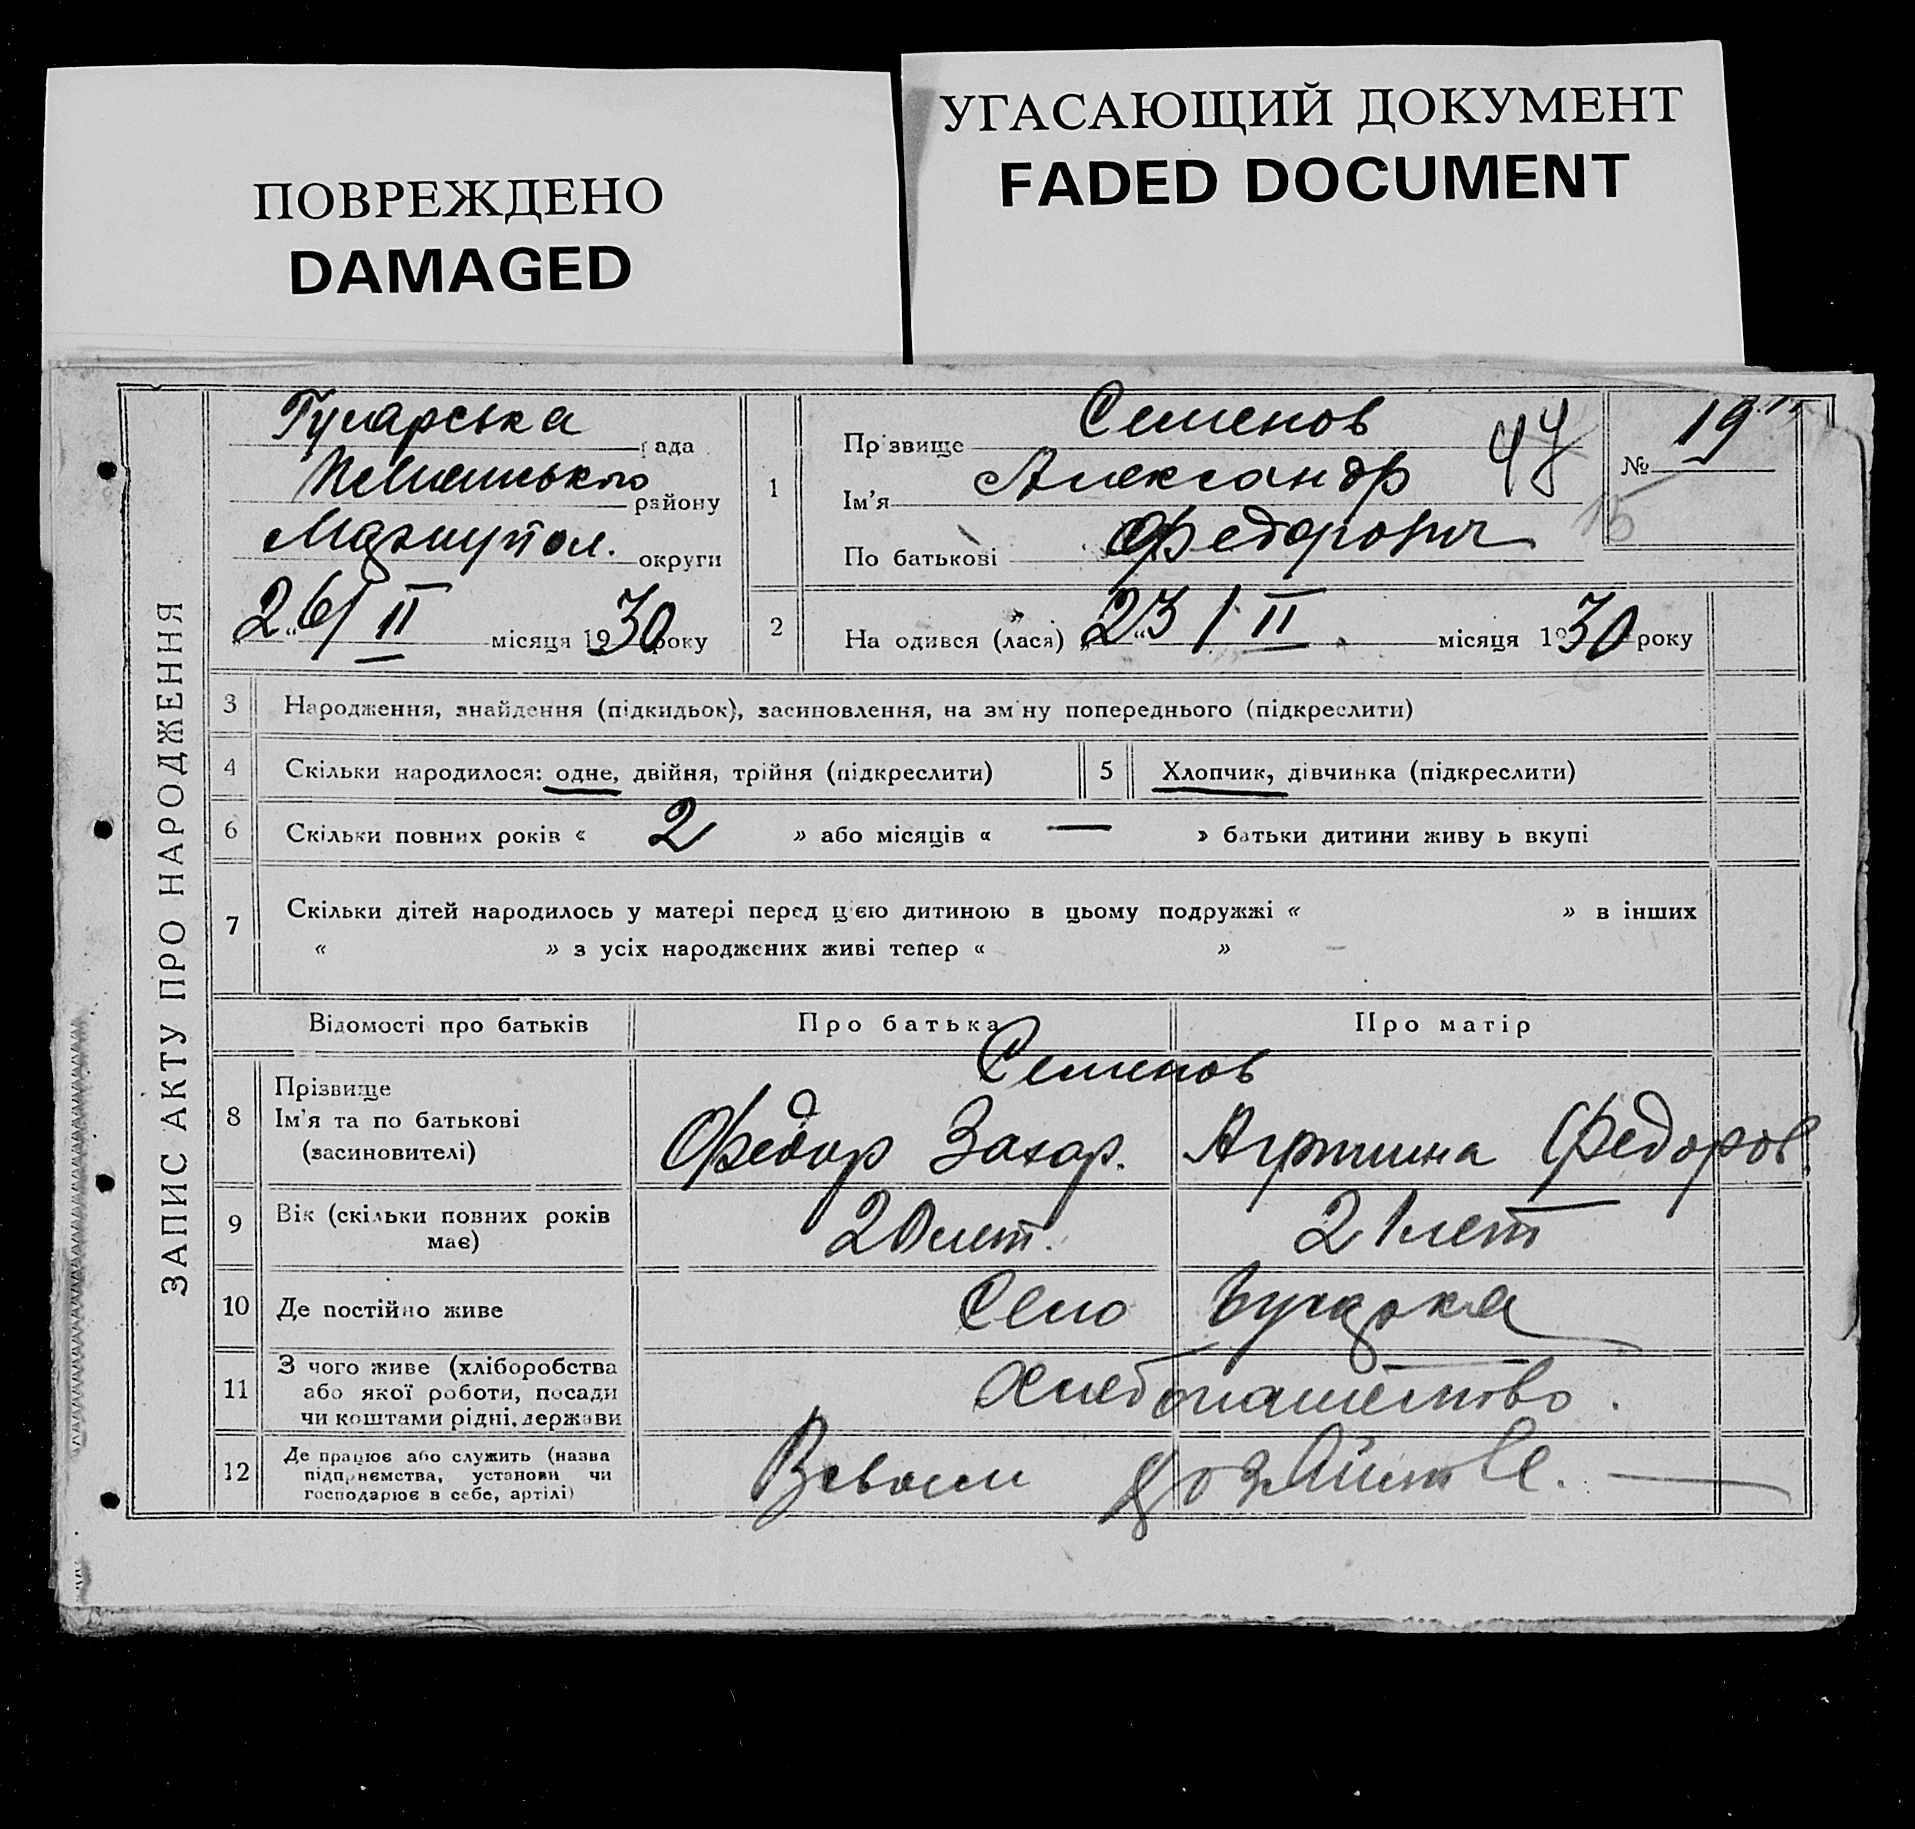 ПОВРЕЖДЕНО
DAMAGED
УГАСАЮЩИЙ ДОКУМЕНТ
FADED DOCUMENT
ЗАПИС АКТУ ПРО НАРОДЖЕННЯ
рада
району
округи
26/II місяця 1930 року
1
Прізвище Семенов
Ім'я Александр
По батькові Федорович
47
№ 19
15
2 На одився (лася) « 23 / II місяця 1930 року
3 Народження, знайдення (підкидьок), засиновлення, на зміну попереднього (підкреслити)
4 Скільки народилося: одне, двійня, трійня (підкреслити)
5 Хлопчик, дівчинка (підкреслити)
6 Скільки повних років « 2 » або місяців « — » батьки дитини живу ь вкупі
7 Скільки дітей народилось у матері перед цією дитиною в цьому подружжі « » в інших
« » з усіх народжених живі тепер « »
Відомості про батьків
Про батька
Про матір
8 Прізвище
Ім'я та по батькові
(засиновителі)
Семенов
Федор Захар.
Федоров.
9 Вік (скільки повних років
має)
20 лет.
21 лет
10 Де постійно живе
Село
11 З чого живе (хліборобства
або якої роботи, посади
чи коштами рідні, держави
Хлебопашество.
12 Де працює або служить (назва
підприємства, установи чи
господарює в себе, артілі)
В своем